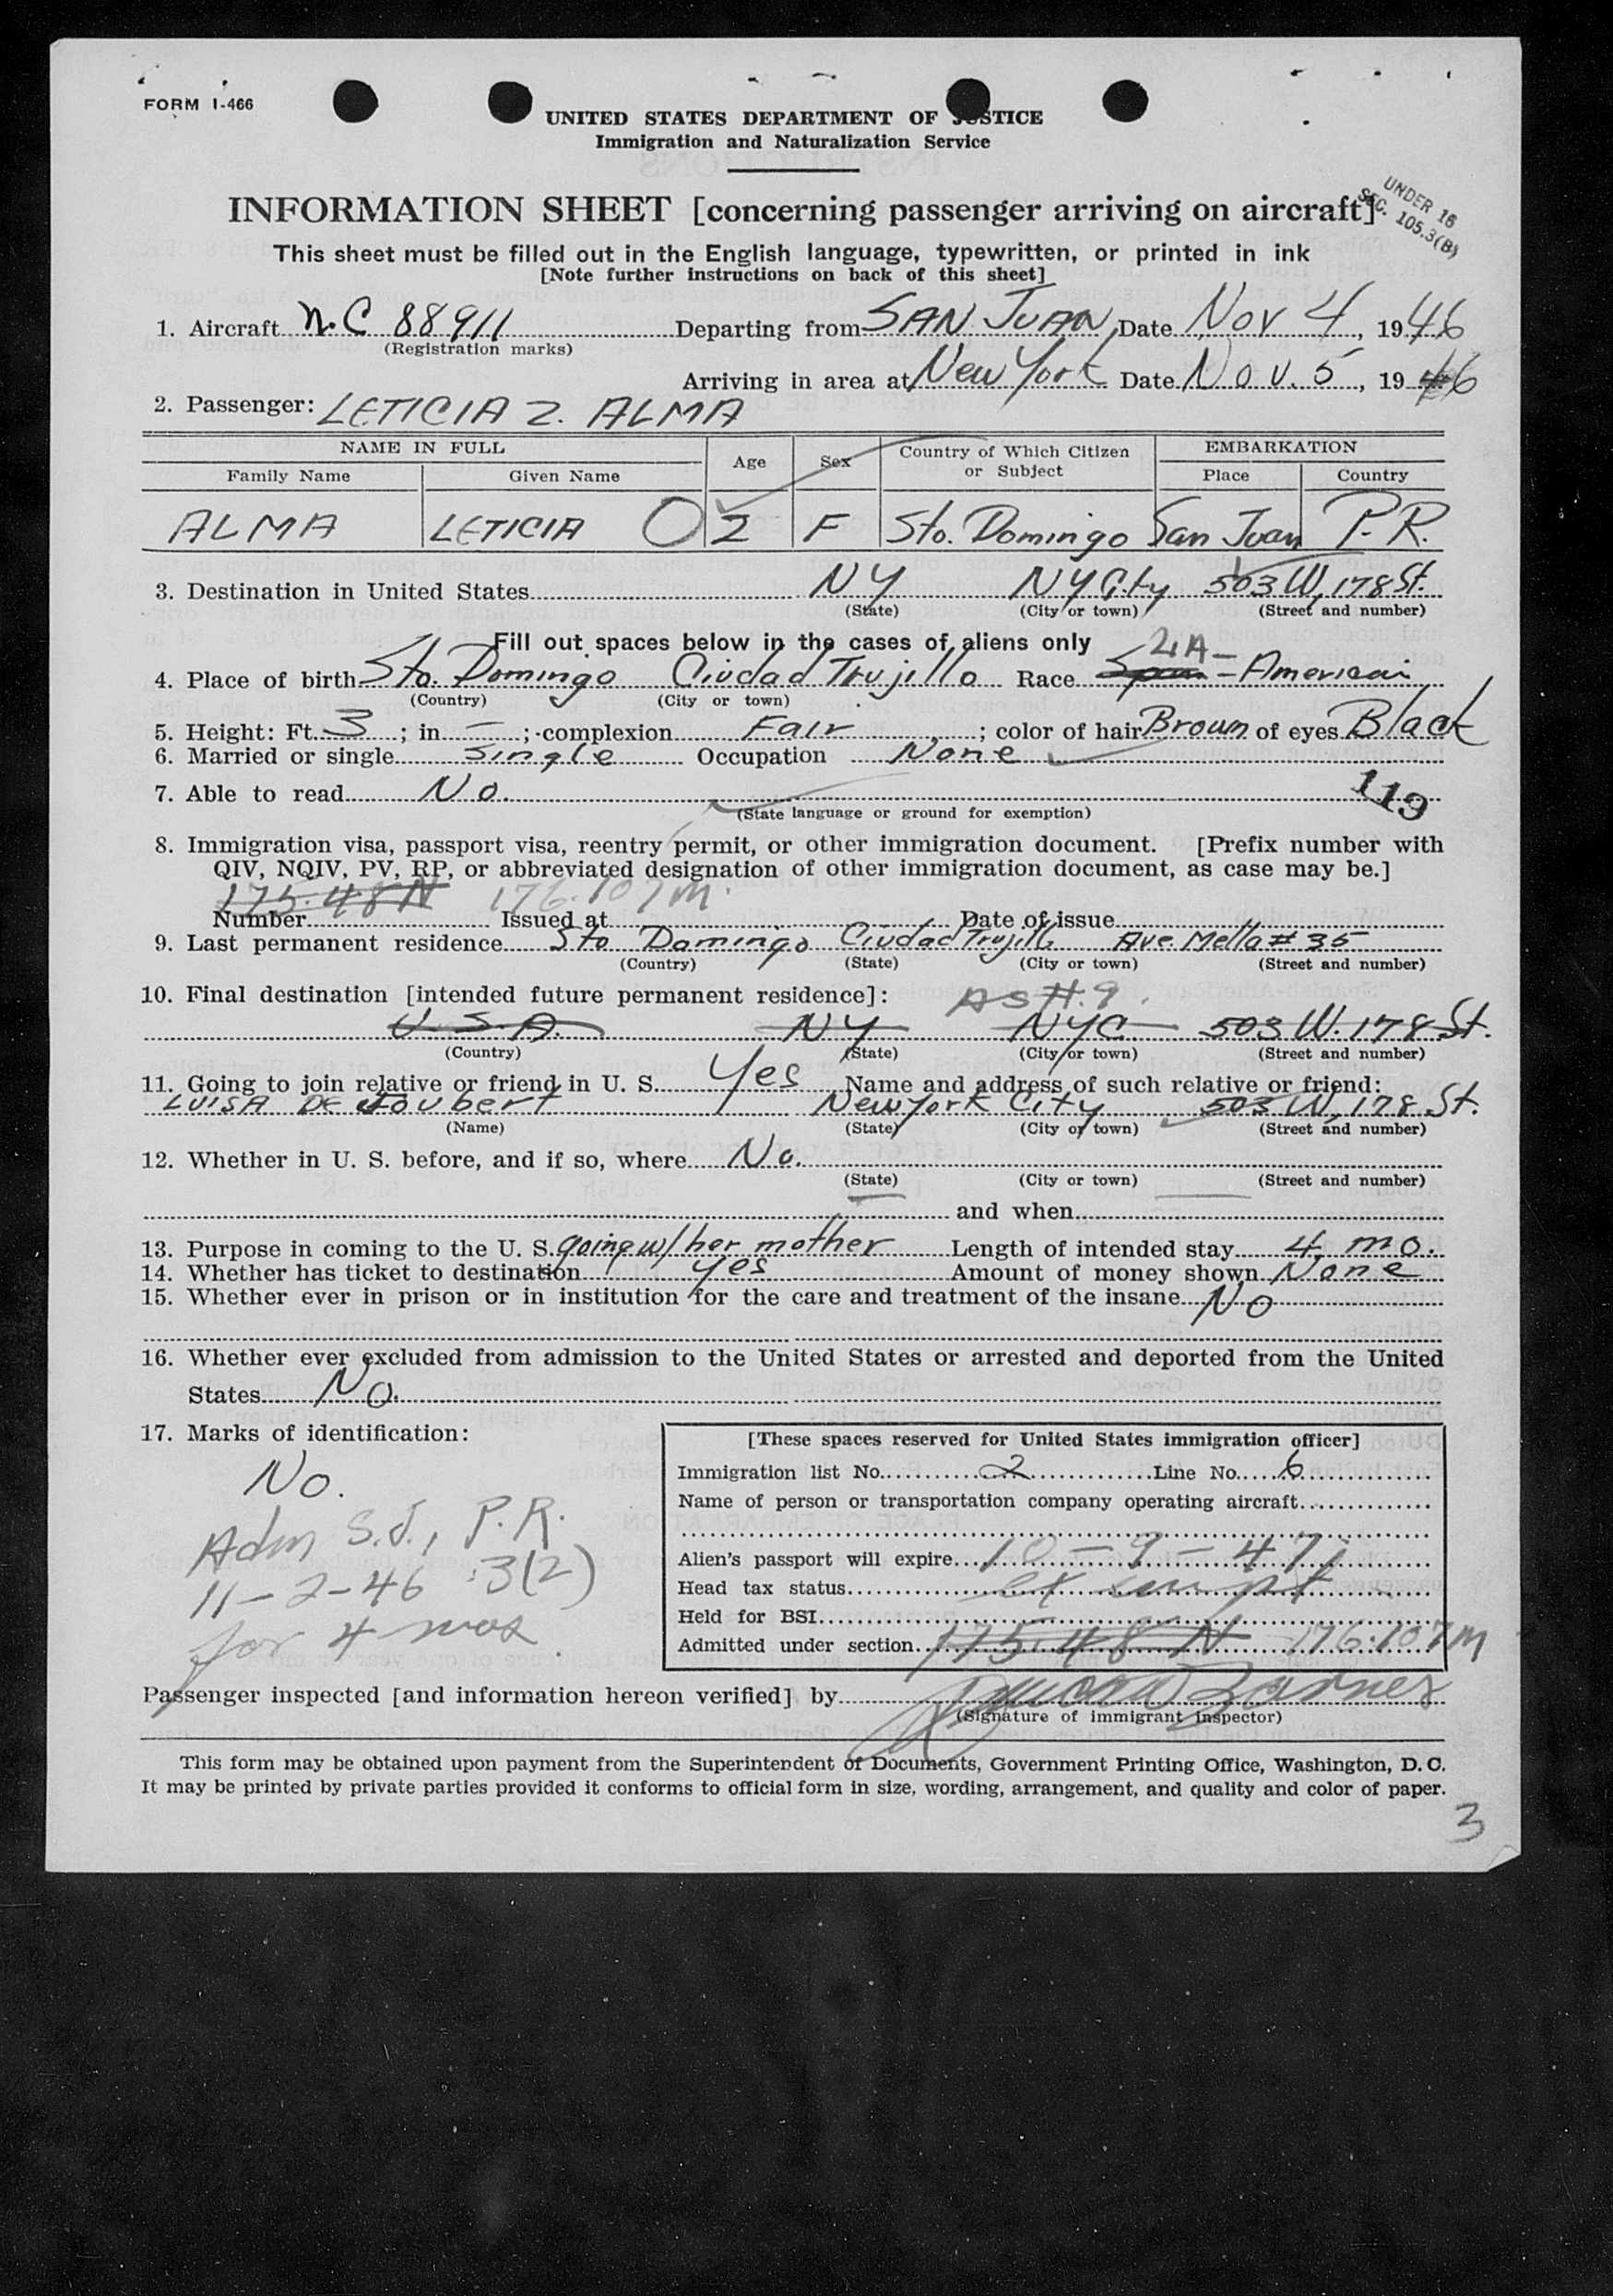 FORM I-466
UNITED STATES DEPARTMENT OF JUSTICE
Immigration and Naturalization Service
INFORMATION SHEET [concerning passenger arriving on aircraft]
UNDER 16
SEC. 105.3(B)
This sheet must be filled out in the English language, typewritten, or printed in ink
[Note further instructions on back of this sheet]
1. Aircraft N.C 88911 Departing from SAN JUAN Date Nov 4, 1946
(Registration marks)
Arriving in area at New York Date Nov. 5, 1946
2. Passenger: LETICIA Z. ALMA
NAME IN FULL Age Sex Country of Which Citizen or Subject EMBARKATION
Family Name Given Name Place Country
ALMA LETICIA 2 F Sto. Domingo San Juan P.R.
3. Destination in United States NY NY City 503 W. 178 St.
(State) (City or town) (Street and number)
Fill out spaces below in the cases of aliens only
4. Place of birth Sto. Domingo Ciudad Trujillo Race Span - American
(Country) (City or town)
5. Height: Ft. 3; in —; complexion Fair; color of hair Brown of eyes Black
6. Married or single single Occupation None
7. Able to read No.
(State language or ground for exemption)
119
8. Immigration visa, passport visa, reentry permit, or other immigration document. [Prefix number with
QIV, NQIV, PV, RP, or abbreviated designation of other immigration document, as case may be.]
175.48N 176.107M
Number Issued at Date of issue
9. Last permanent residence Sto Domingo Ciudad Trujillo Ave. Mella # 35
(Country) (State) (City or town) (Street and number)
10. Final destination [intended future permanent residece]: As #.9.
U.S.A. NY NYC 503 W. 178 St.
(Country) (State) (City or town) (Street and number)
11. Going to join relative or friend in U. S. Yes Name and address of such relative or friend:
LUISA DE Joubert New York City 503 W, 178 St.
(Name) (State) (City or town) (Street and number)
12. Whether in U. S. before, and if so, where No.
(State) (City or town) (Street and number)
and when
13. Purpose in coming to the U. S. going w/ her mother Length of intended stay 4 mo.
14. Whether has ticket to destination yes Amount of money shown None
15. Whether ever in prison or in institution for the care and treatment of the insane No
16. Whether ever excluded from admission to the United States or arrested and deported from the United
States No.
17. Marks of identification:
No.
Adm S.J., P.R.
11-2-46 :3(2)
for 4 mos
[These spaces reserved for United States immigration officer]
Immigration list No. 2 Line No. 6
Name of person or transportation company operating aircraft
Alien's passport will expire 10-9-47
Head tax status exempt
Held for BSI
Admitted under section 175.48 N 176.107M
Passenger inspected [and information hereon verified] by
(Signature of immigrant inspector)
This form may be obtained upon payment from the Superintendent of Documents, Government Printing Office, Washington, D. C.
It may be printed by private parties provided it conforms to official form in size, wording, arrangement, and quality and color of paper.
3